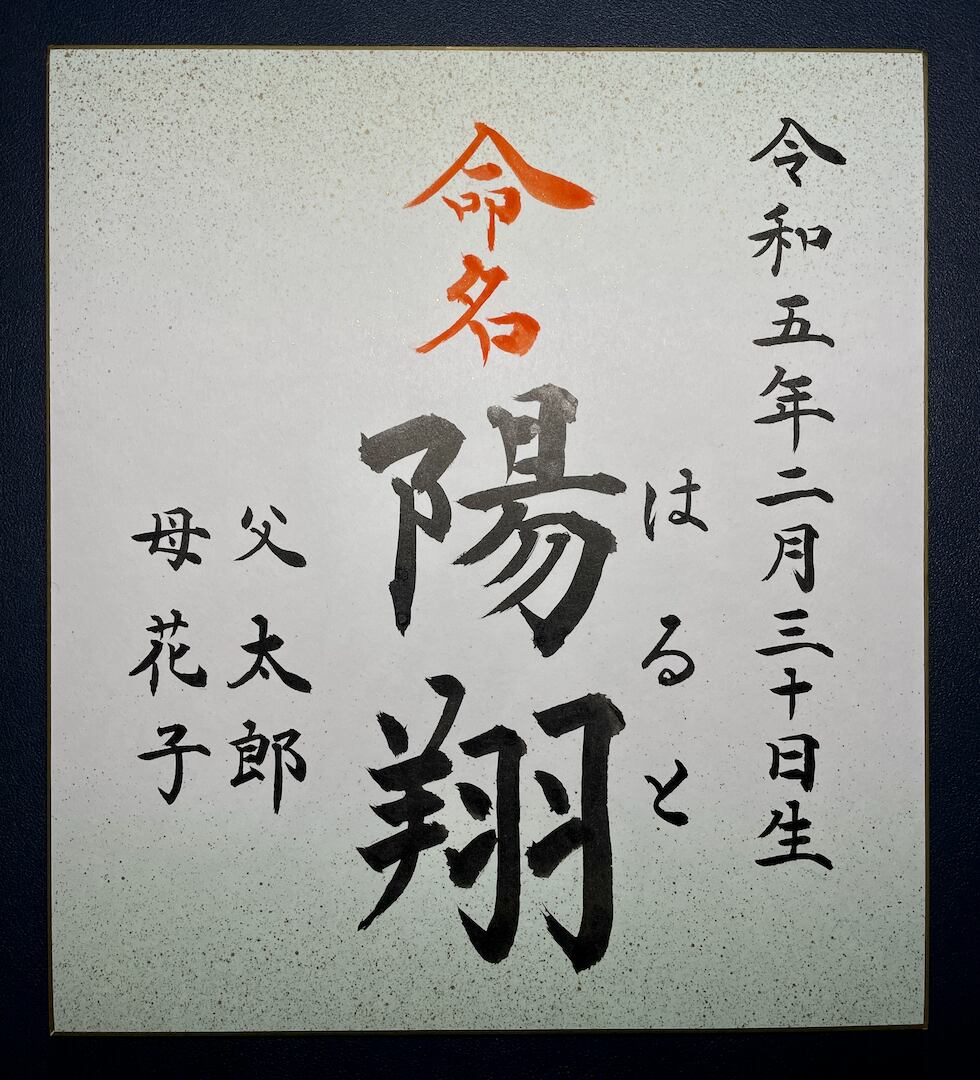 令和五年二月三十日生
命名
陽翔
はると
父 太郎
母 花子